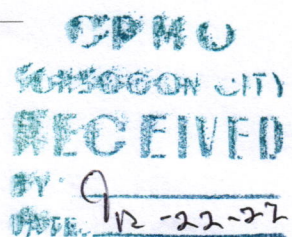 CPMO
SORSOGON CITY
RECEIVED
BY:
DATE: 12-22-22